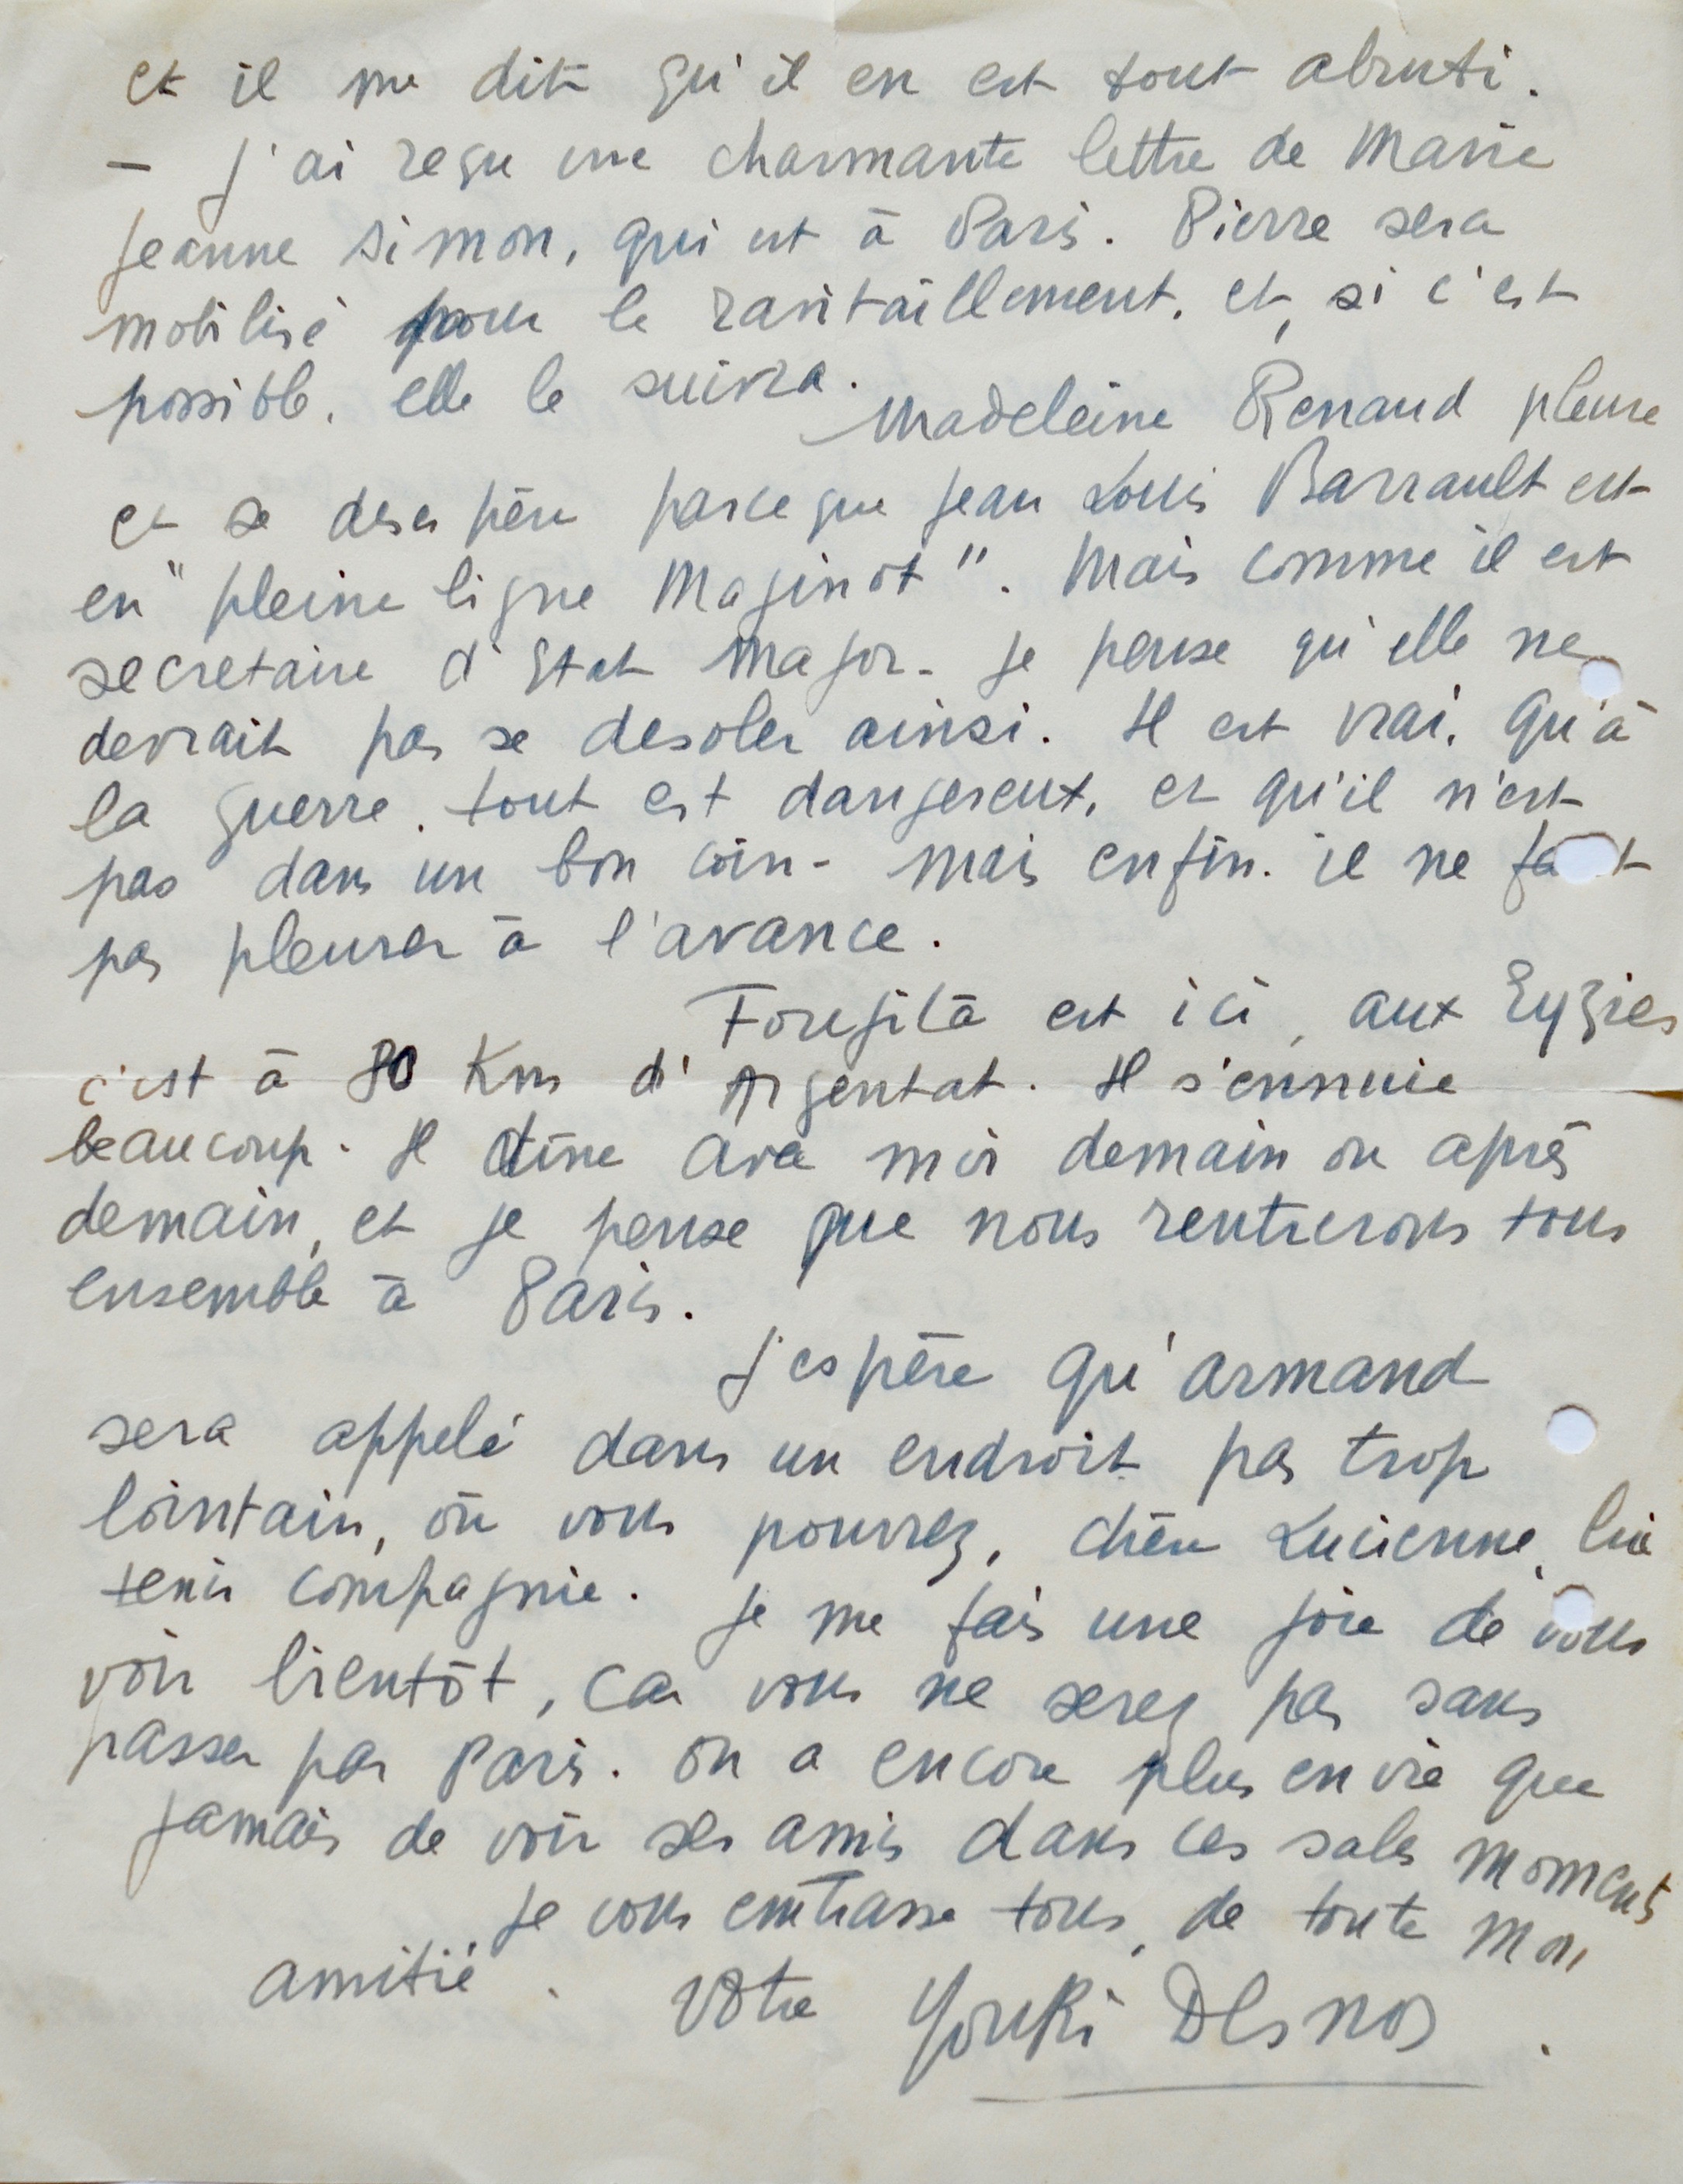 et il me dit qu'il en est tout abruti.
— J'ai reçu une charmante lettre de Marie
Jeanne Simon, qui est à Paris. Pierre sera
mobilisé pour le ravitaillement. et, si c'est
possible. elle le suivra.
Madeleine Renaud pleure
et se desespère parce que Jean Louis Barrault est
en "pleine ligne Maginot". Mais comme il est
secretaire d'Etat Major - je pense qu'elle ne
devrait pas se desoler ainsi. Il est vrai, qu'à
la guerre. tout est dangereux, et qu'il n'est
pas dans un bon coin - mais enfin. il ne faut
pas pleurer à l'avance.
Foujita est ici, aux Eyzies
c'est à 80 Kms d'Argentat. Il s'ennuie
beaucoup. Il dine avec moi demain ou après
demain, et je pense que nous rentrerons tous
ensemble à Paris.
J'espère qu'Armand
sera appelé dans un endroit pas trop
lointain, où vous pourrez, chère Lucienne, lui
tenir compagnie. Je me fais une joie de vous
voir bientôt, car vous ne serez pas sans
passer par Paris. On a encore plus envie que
jamais de voir ses amis dans ces sales moments
Je vous embrasse tous, de toute mon
amitié. Votre Youki Desnos.